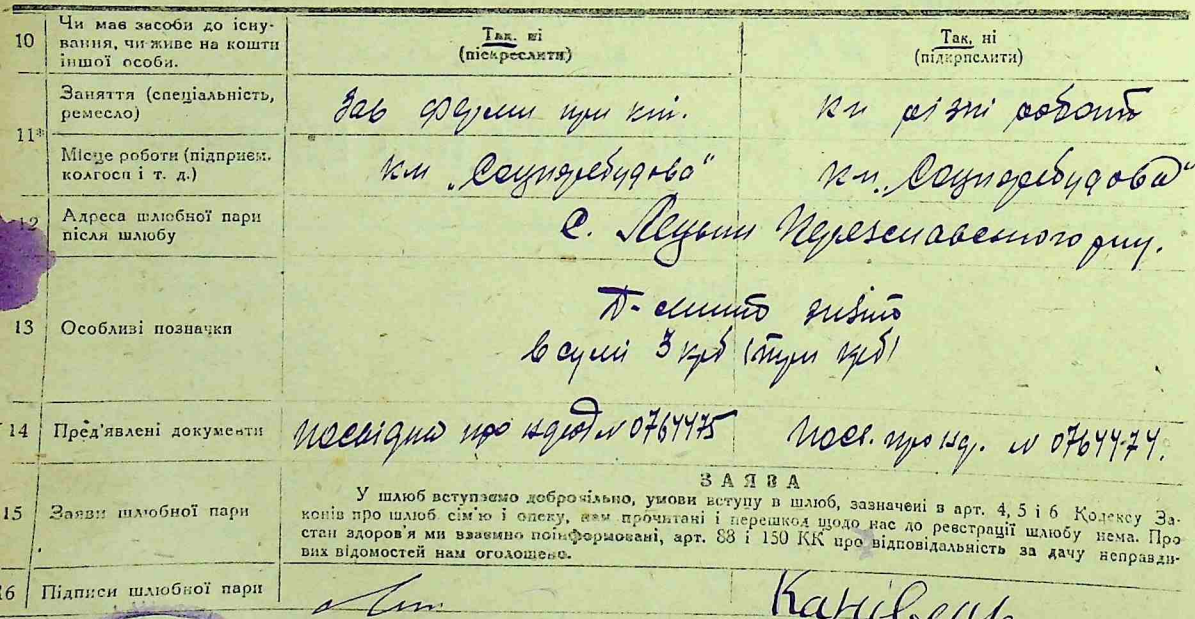 10 Чи має засоби до існу-
вання, чи живе на кошти
іншої особи.
Так, ні
(піскреслити)
Так, ні
(підкрпслити)
11* Заняття (спеціальність,
ремесло)
Зав ферми при кгі.
кг різні роботи
Місце роботи (підприєм.
колгосп і т. д.)
кг „Соцперебудова"
кг. „Соцперебудова"
12 Адреса шлюбної пари
після шлюбу
с. Лецьки Переяславського рну.
13 Особливі позначки
знято
в сумі 3 крб (три крб)
14 Пред'явлені документи
Посвідка про N 0764475
Посв. про N 0764474.
15 Заяви шлюбної пари
ЗАЯВА
У шлюб вступаємо доброчільно, умови вступу в шлюб, зазначені в арт. 4, 5 і 6 Кодексу За-
конів про шлюб, сім'ю і опеку, нам прочитані і перешкод щодо нас до реєстрації шлюбу нема. Про
стан здоров'я ми взаємно поінформовані, арт. 88 і 150 КК про відповідальність за дачу неправди-
вих відомостей нам оголошено.
16 Підписи шлюбної пари
Канівець